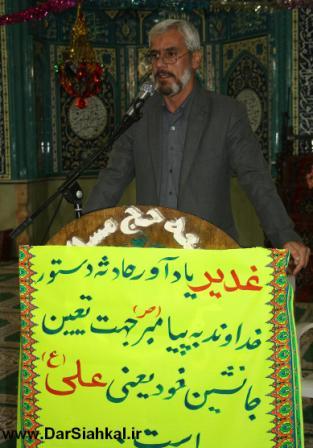 حج
غدیر یادآور حادثه دستور
خداوند به پیامبر (ص) جهت تعیین
جانشین خود یعنی علی (ع)
است
www.DarSiahkal.ir